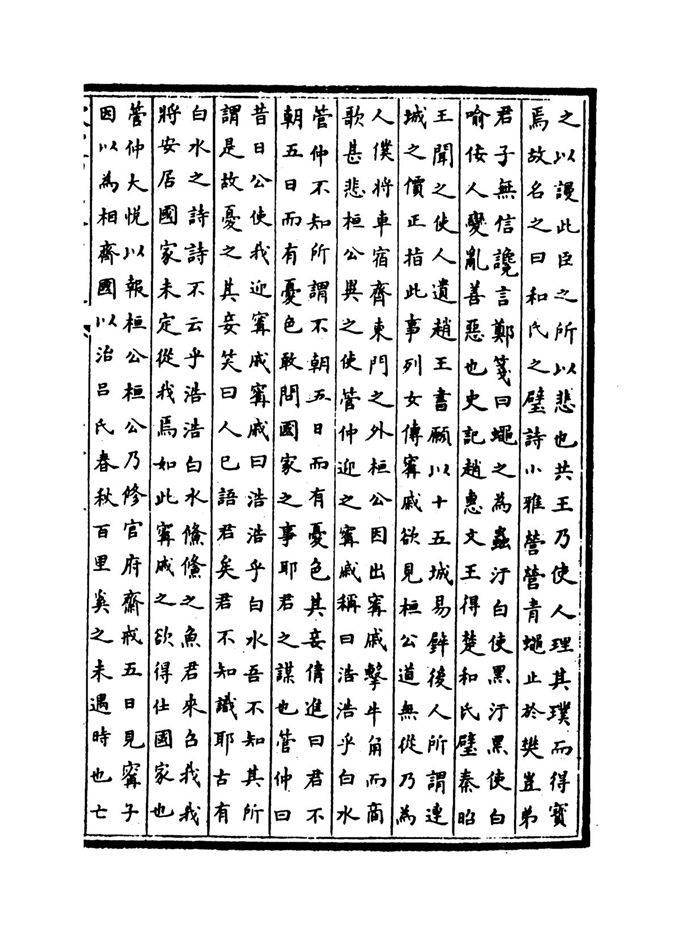 之以謾此臣之所以悲也共王乃使人理其璞而得寳
焉故名之曰和氏之璧詩小雅營營青蠅止於樊豈弟
君子無信讒言鄭箋曰蠅之為蟲汙白使黑汙黑使白
喻佞人變亂善惡也史記趙惠文王得楚和氏璧秦昭
王聞之使人遺趙王書願以十五城易鉾後人所謂連
城之價正指此事列女傳甯戚欲見桓公道無從乃為
人僕將車宿齊東門之外桓公因出甯戚擊牛角而商
歌甚悲桓公異之使管仲迎之甯戚稱曰浩浩乎白水
管仲不知所謂不朝五日而有憂色其妾倩進曰君不
朝五日而有憂色敢問國家之事耶君之謀也管仲曰
昔日公使我迎甯戚甯戚曰浩浩乎白水吾不知其所
謂是故憂之其妾笑曰人已語君矣君不知識耶古有
白水之詩詩不云乎浩浩白水鯈鯈之魚君來召我我
將安居國家未定從我焉如此甯戚之欲得仕國家也
管仲大悅以報桓公桓公乃修官府齋戒五日見甯子
因以為相齊國以治吕氏春秋百里奚之未遇時也亡